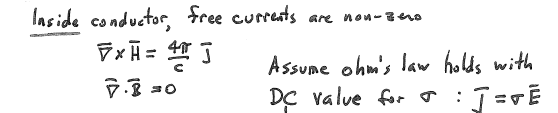 Inside conductor, free currents are non-zero
∇̄ x H̄ = 4π/c J̄
∇̄ · B̄ = 0
Assume ohm's law holds with
DC value for σ : J̄ = σ Ē